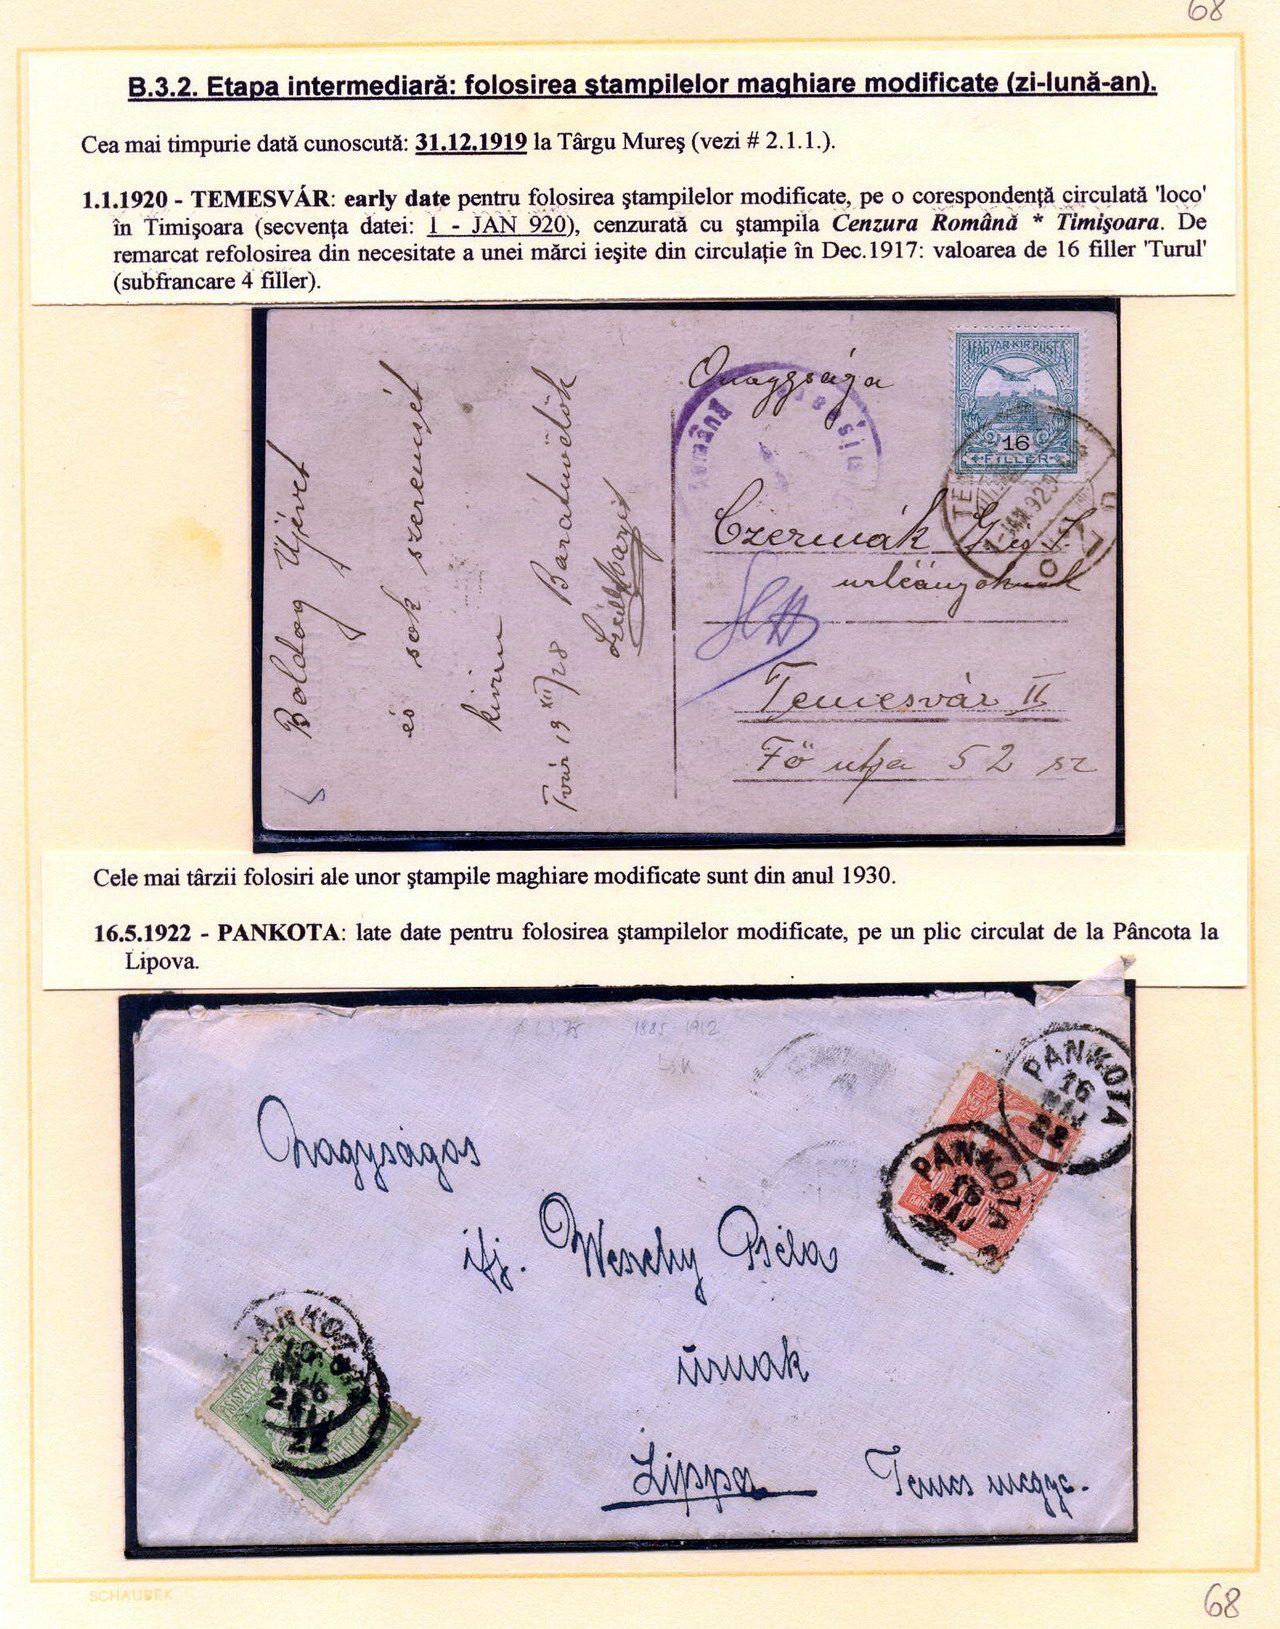 68
B.3.2. Etapa intermediară: folosirea ştampilelor maghiare modificate (zi-lună-an).
Cea mai timpurie dată cunoscută: 31.12.1919 la Târgu Mureş (vezi # 2.1.1.).
1.1.1920 - TEMESVÁR: early date pentru folosirea ştampilelor modificate, pe o corespondenţă circulată 'loco'
în Timişoara (secvenţa datei: 1 - JAN 920), cenzurată cu ştampila Cenzura Română * Timişoara. De
remarcat refolosirea din necesitate a unei mărci ieşite din circulaţie în Dec.1917: valoarea de 16 filler 'Turul'
(subfrancare 4 filler).
Boldog Újévet
és sok szerencsét
kíván
Tvár 19 XII/28
MAGYAR KIR. POSTA
16
FILLÉR
Română
Czermák
urleányoknak
Temesvár II
Fő utza 52 sz
Cele mai târzii folosiri ale unor ştampile maghiare modificate sunt din anul 1930.
16.5.1922 - PANKOTA: late date pentru folosirea ştampilelor modificate, pe un plic circulat de la Pâncota la
Lipova.
1885 1912
PANKOTA
16
MAJ
22
PANKOTA
16
MAJ
22
Nagyságos
ifj. Béla
úrnak
Lippa Temes megye.
PANKOTA
22
SCHAUBEK
68